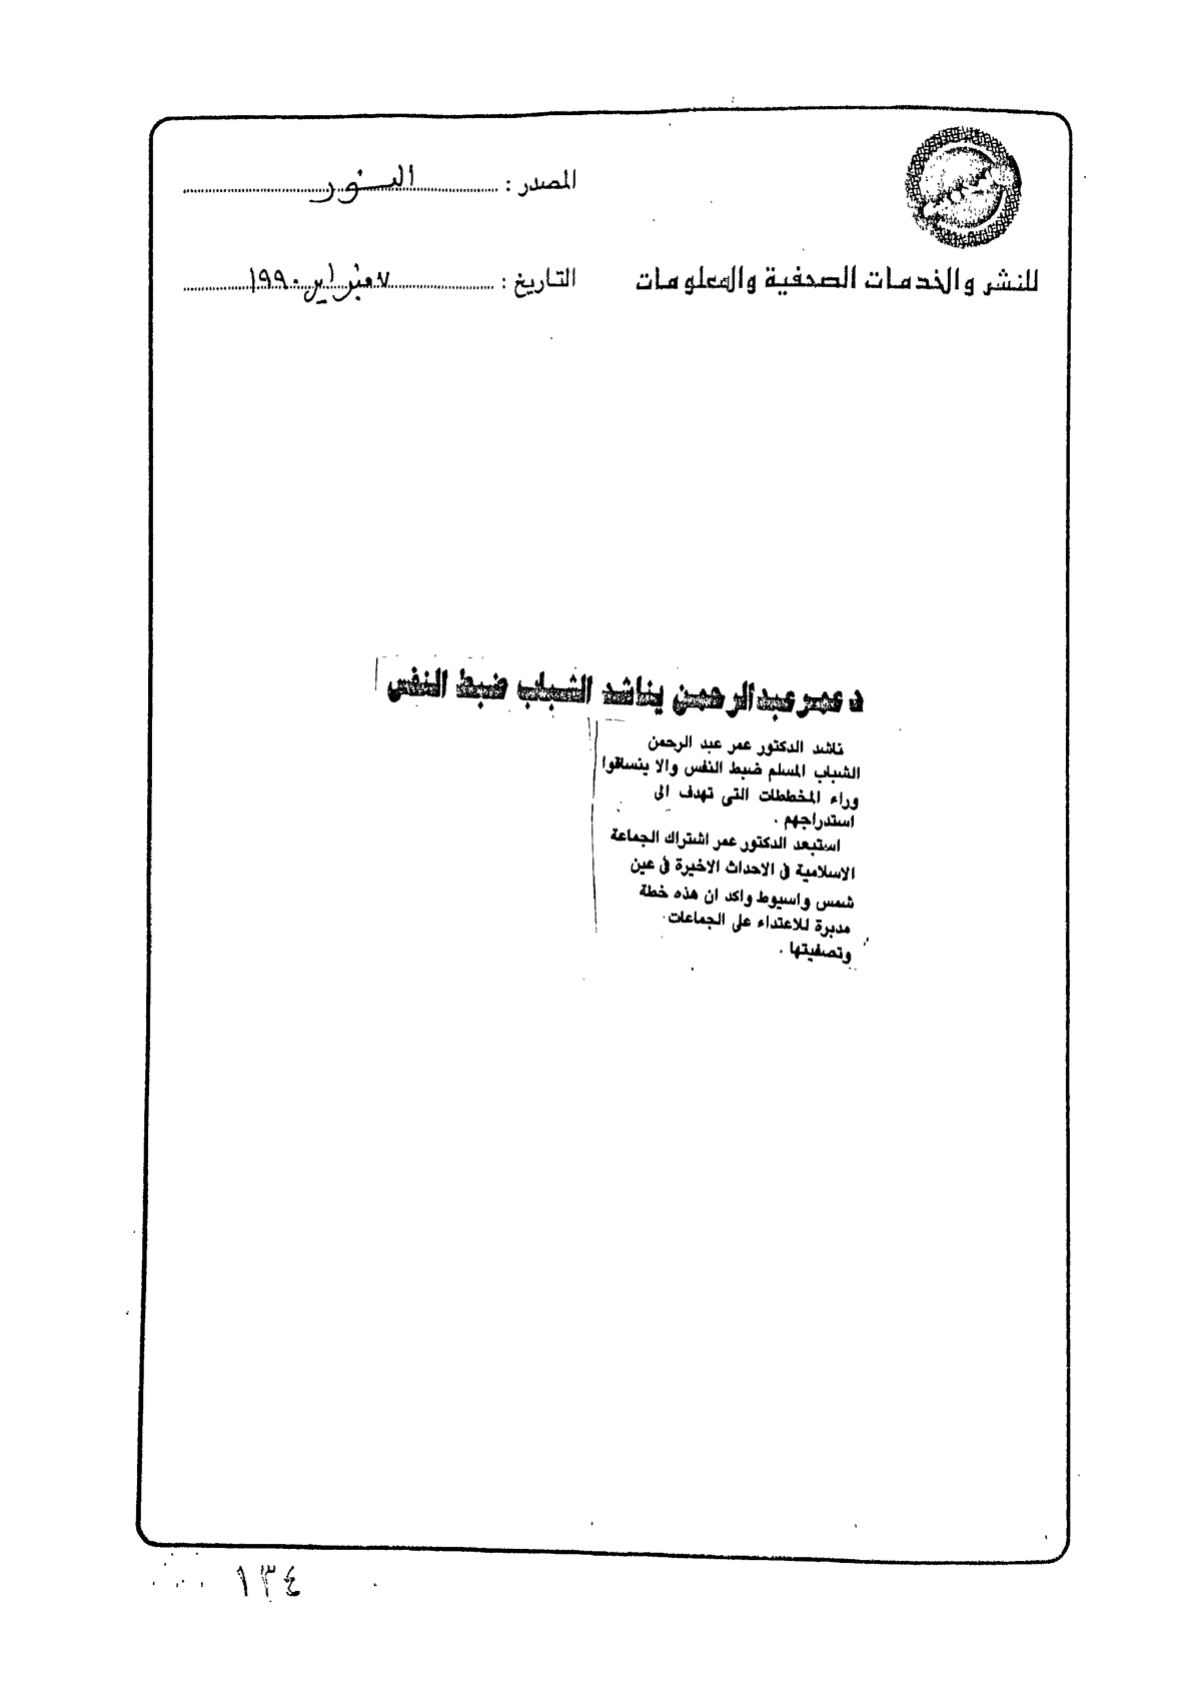 المصدر : النور
للنشر والخدمات الصحفية والمعلومات
التاريخ : ٧ فبراير ١٩٩٠
د. عمر عبدالرحمن يناشد الشباب ضبط النفس
ناشد الدكتور عمر عبد الرحمن
الشباب المسلم ضبط النفس والا ينساقوا
وراء المخططات التى تهدف الى
استدراجهم .
استبعد الدكتور عمر اشتراك الجماعة
الاسلامية فى الاحداث الاخيرة فى عين
شمس واسيوط واكد ان هذه خطة
مدبرة للاعتداء على الجماعات
وتصفيتها .
١٣٤